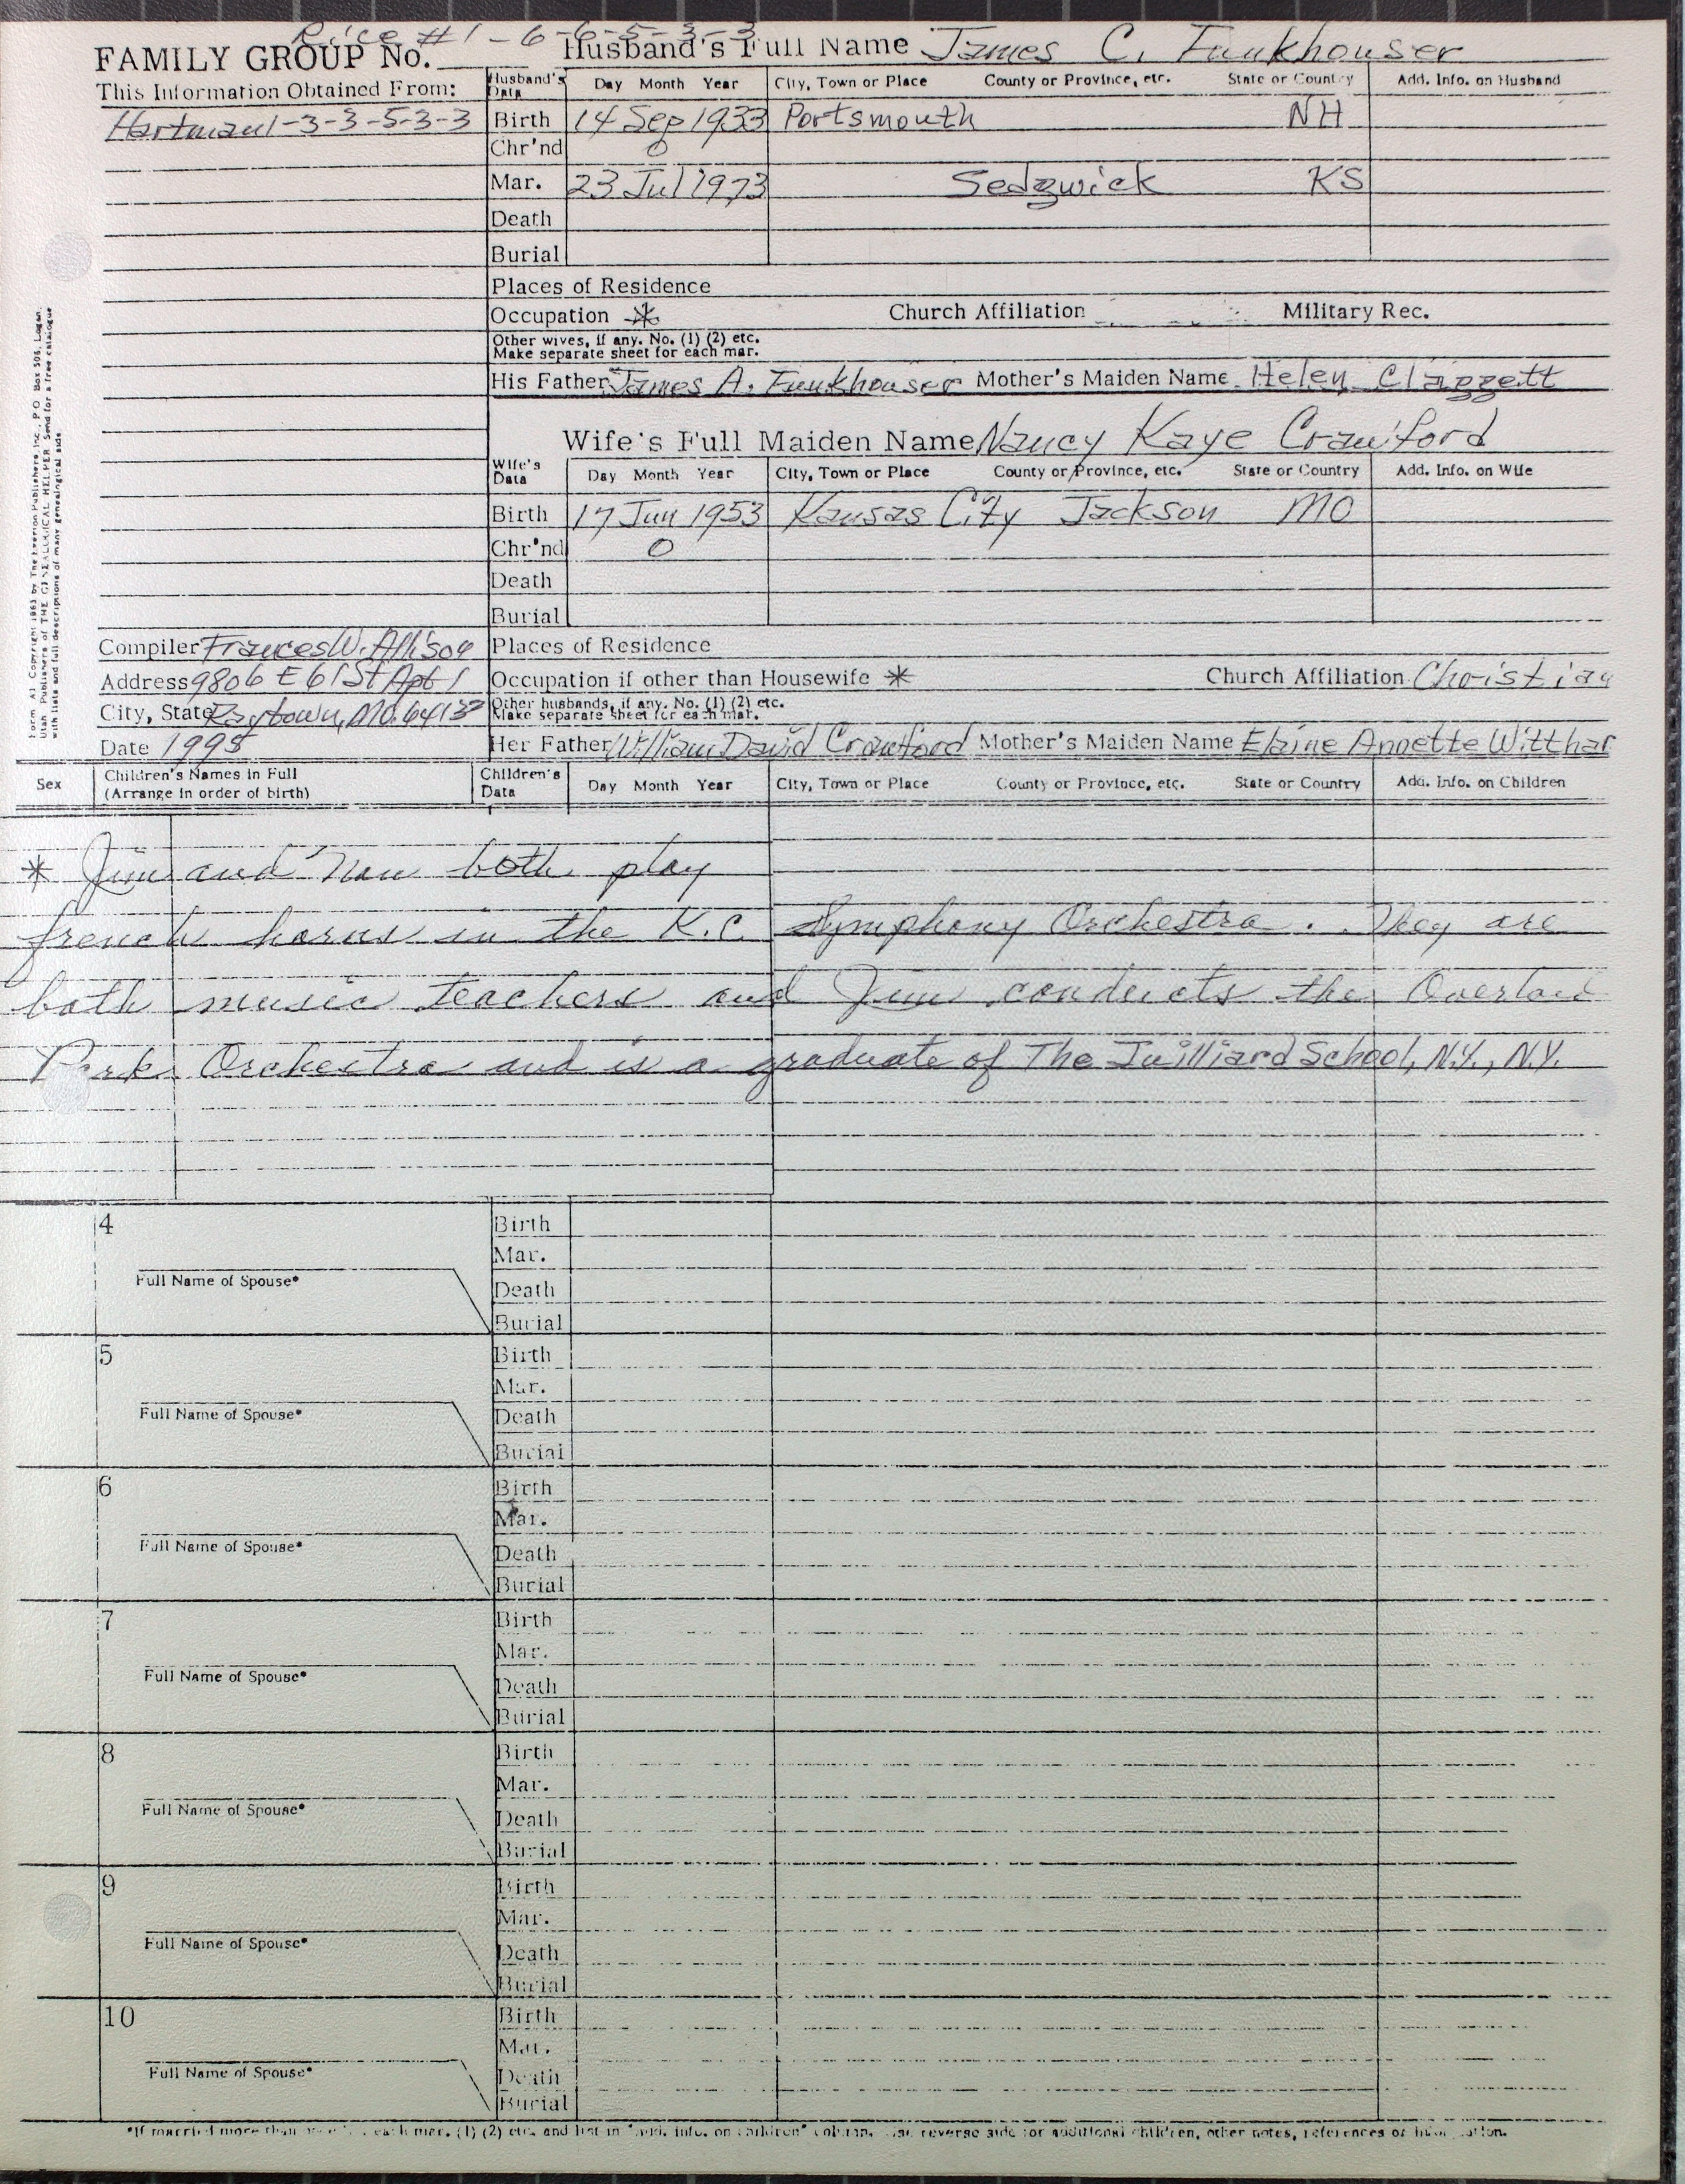 Rice #1-6-6-5-3-3
FAMILY GROUP No. Husband's Full Name James C. Funkhouser
This Information Obtained From: Husband's Data Day Month Year City, Town or Place County or Province, etc. State or Country Add. Info. on Husband
Hartman 1-3-3-5-3-3 Birth 14 Sep 1933 Portsmouth NH
Chr'nd
Mar. 23 Jul 1973 Sedgwick KS
Death
Burial
Places of Residence
Occupation * Church Affiliation Military Rec.
Other wives, if any. No. (1) (2) etc.
Make separate sheet for each mar.
His Father James A. Funkhouser Mother's Maiden Name Helen Claggett
Wife's Full Maiden Name Nancy Kaye Crawford
Wife's Data Day Month Year City, Town or Place County or Province, etc. State or Country Add. Info. on Wife
Birth 17 Jun 1953 Kansas City Jackson MO
Chr'nd
Death
Burial
Compiler Frances W. Allison Places of Residence
Address 9806 E 61 St Apt 1 Occupation if other than Housewife * Church Affiliation Christian
City, State Raytown, MO. 64133 Other husbands, if any. No. (1) (2) etc.
Make separate sheet for each mar.
Date 1998 Her Father William David Crawford Mother's Maiden Name Elaine Annette Witthar
Sex Children's Names in Full Children's Data Day Month Year City, Town or Place County or Province, etc. State or Country Add. Info. on Children
(Arrange in order of birth)
* Jim and Nan both play
french horns in the K.C. Symphony Orchestra. They are
both music teachers and Jim conducts the Overland
Park Orchestra and is a graduate of The Juilliard School, N.Y., N.Y.
4 Birth
Mar.
Full Name of Spouse*
Death
Burial
5 Birth
Mar.
Full Name of Spouse*
Death
Burial
6 Birth
Mar.
Full Name of Spouse*
Death
Burial
7 Birth
Mar.
Full Name of Spouse*
Death
Burial
8 Birth
Mar.
Full Name of Spouse*
Death
Burial
9 Birth
Mar.
Full Name of Spouse*
Death
Burial
10 Birth
Mar.
Full Name of Spouse*
Death
Burial
*If married more than each mar. (1) (2) etc. and list in "add. info. on children" column. reverse side for additional children, other notes, references or information.
Form A1 Copyright 1963 by The Everton Publishers, Inc., P.O. Box 368, Logan,
Utah Publishers of THE GENEALOGICAL HELPER. Send for a free catalogue
with lists and full descriptions of many genealogical aids.